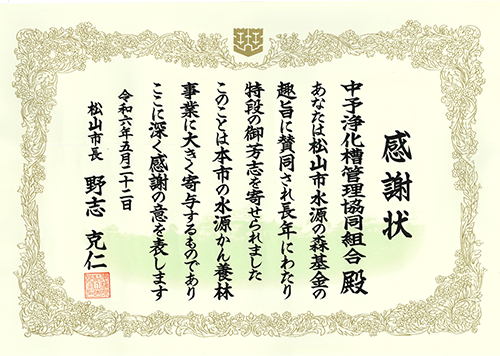 感謝状
中予浄化槽管理協同組合 殿
あなたは松山市水源の森基金の
趣旨に賛同され長年にわたり
特段の御芳志を寄せられました
このことは本市の水源かん養林
事業に大きく寄与するものであり
ここに深く感謝の意を表します
令和六年五月二十二日
松山市長 野志 克仁